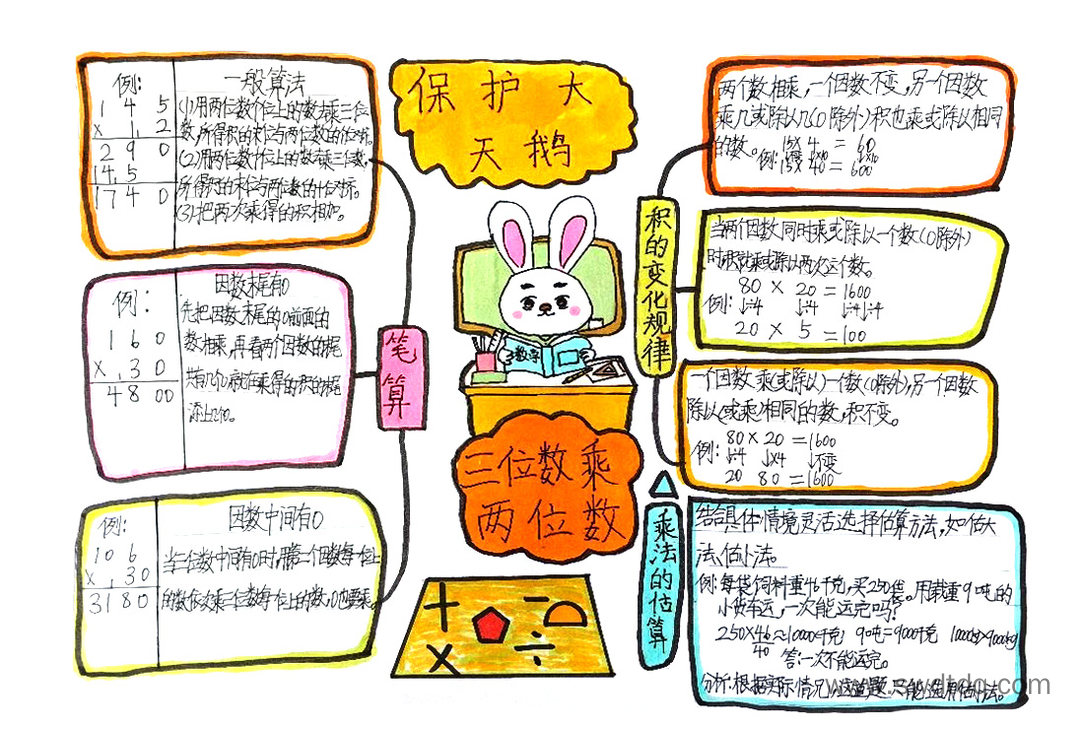 保护大
天鹅
例:
1 4 5
× 1 2
2 9 0
1 4 5
1 7 4 0
一般算法
(1)用两位数个位上的数去乘三位
数,所得积的末位与两位数的个位对齐。
(2)用两位数十位上的数去乘三位数,
所得积的末位与两位数的十位对齐。
(3)把两次乘得的积相加。
例:
1 6 0
× 3 0
4 8 0 0
因数末尾有0
先把因数末尾的0前面的
数相乘,再看两个因数的末尾
共有几个0就在乘得的积的末尾
添上几个0。
例:
1 0 6
× 3 0
3 1 8 0
因数中间有0
当三位数中间有0时,用第二个因数每一位上
的数依次乘三位数每个位上的数,0也要乘。
笔算
数学
三位数乘
两位数
+ − × ÷
积的变化规律
两个数相乘,一个因数不变,另一个因数
乘几或除以几(0除外)积也乘或除以相同
的数。
15×4=60
例:
15×40=600
当两个因数同时乘或除以一个数(0除外)
时积就乘或除以两次这个数。
80×20=1600
例:↓÷4 ↓÷4 ↓÷4↓÷4
20×5=100
一个因数乘(或除以)一个数(0除外),另一个因数
除以(或乘)相同的数,积不变。
80×20=1600
例:↓÷4 ↓×4 ↓不变
20 80=1600
乘法的估算
结合具体情境灵活选择估算方法,如估大
法、估小法。
例:每袋饲料重46千克,买250袋。用载重9吨的
小货车运,一次能运完吗?
250×46≈10000千克 9吨=9000千克 10000kg>9000kg
40
答:一次不能运完。
分析:根据实际情况,这道题只能选用估小法。